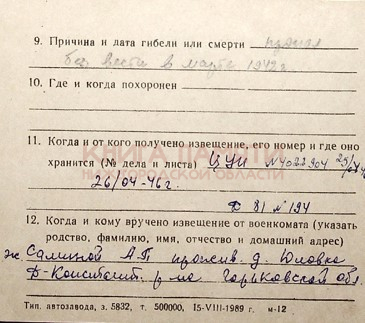 9. Причина и дата гибели или смерти пропал
без вести в марте 1942г
10. Где и когда похоронен
11. Когда и от кого получено извещение, его номер и где оно
хранится (№ дела и листа) №4022904
КНИГА ПАМЯТИ
НИЖЕГОРОДСКОЙ ОБЛАСТИ
26/04-46г.
81 № 194
12. Когда и кому вручено извещение от военкомата (указать
родство, фамилию, имя, отчество и домашний адрес)
ж Салиной А.П прожив. д. Юловка
Д-Констант. р-на Горьковской обл.
Тип. автозавода, з. 5832, т. 500000, 15-VIII-1989 г. м-12